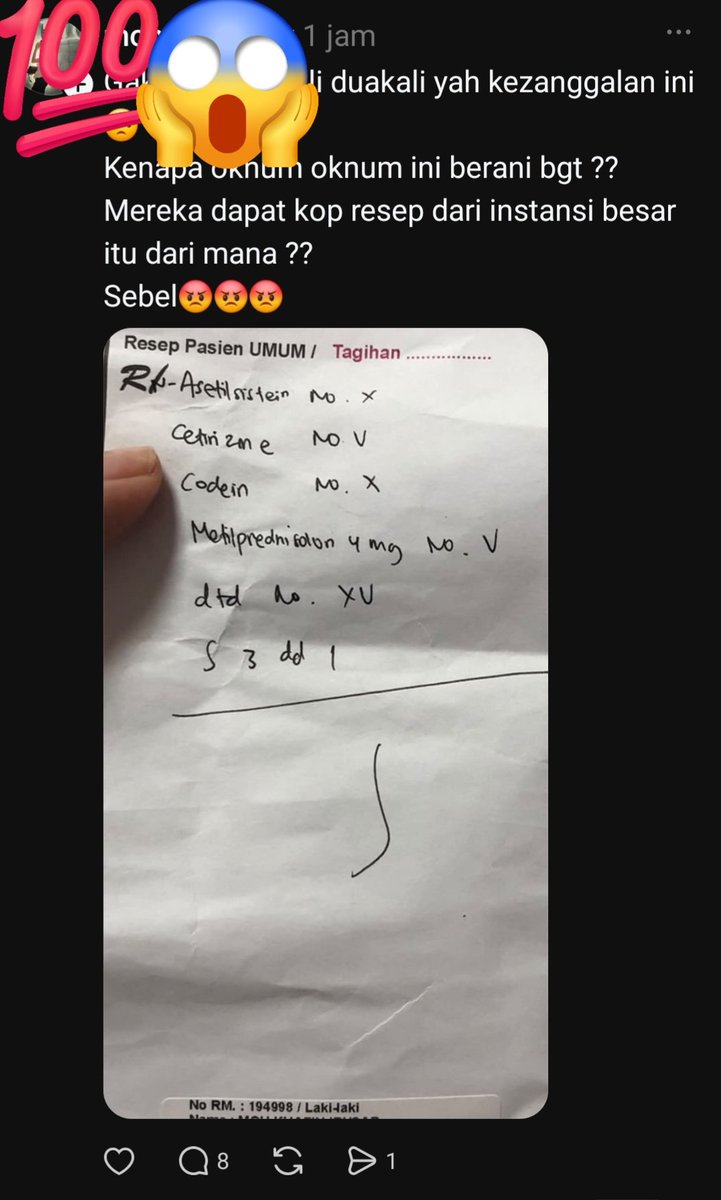 100
1 jam
duakali yah kezanggalan ini
Kenapa oknum oknum ini berani bgt ??
Mereka dapat kop resep dari instansi besar
itu dari mana ??
Sebel😡😡😡
Resep Pasien UMUM / Tagihan .................
R/-Asetilsistein No. X
Cetirizine No. V
Codein No. X
Metilprednisolon 4 mg No. V
dtd No. XV
S 3 dd 1
No RM. : 194998 / Laki-laki
8
1